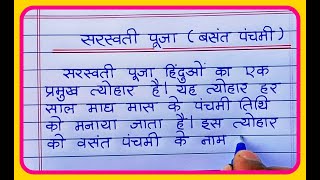 सरस्वती पूजा (बसंत पंचमी)
सरस्वती पूजा हिंदुओं का एक
प्रमुख त्योहार है। यह त्योहार हर
साल माघ मास के पंचमी तिथि
को मनाया जाता है। इस त्योहार
को वसंत पंचमी के नाम